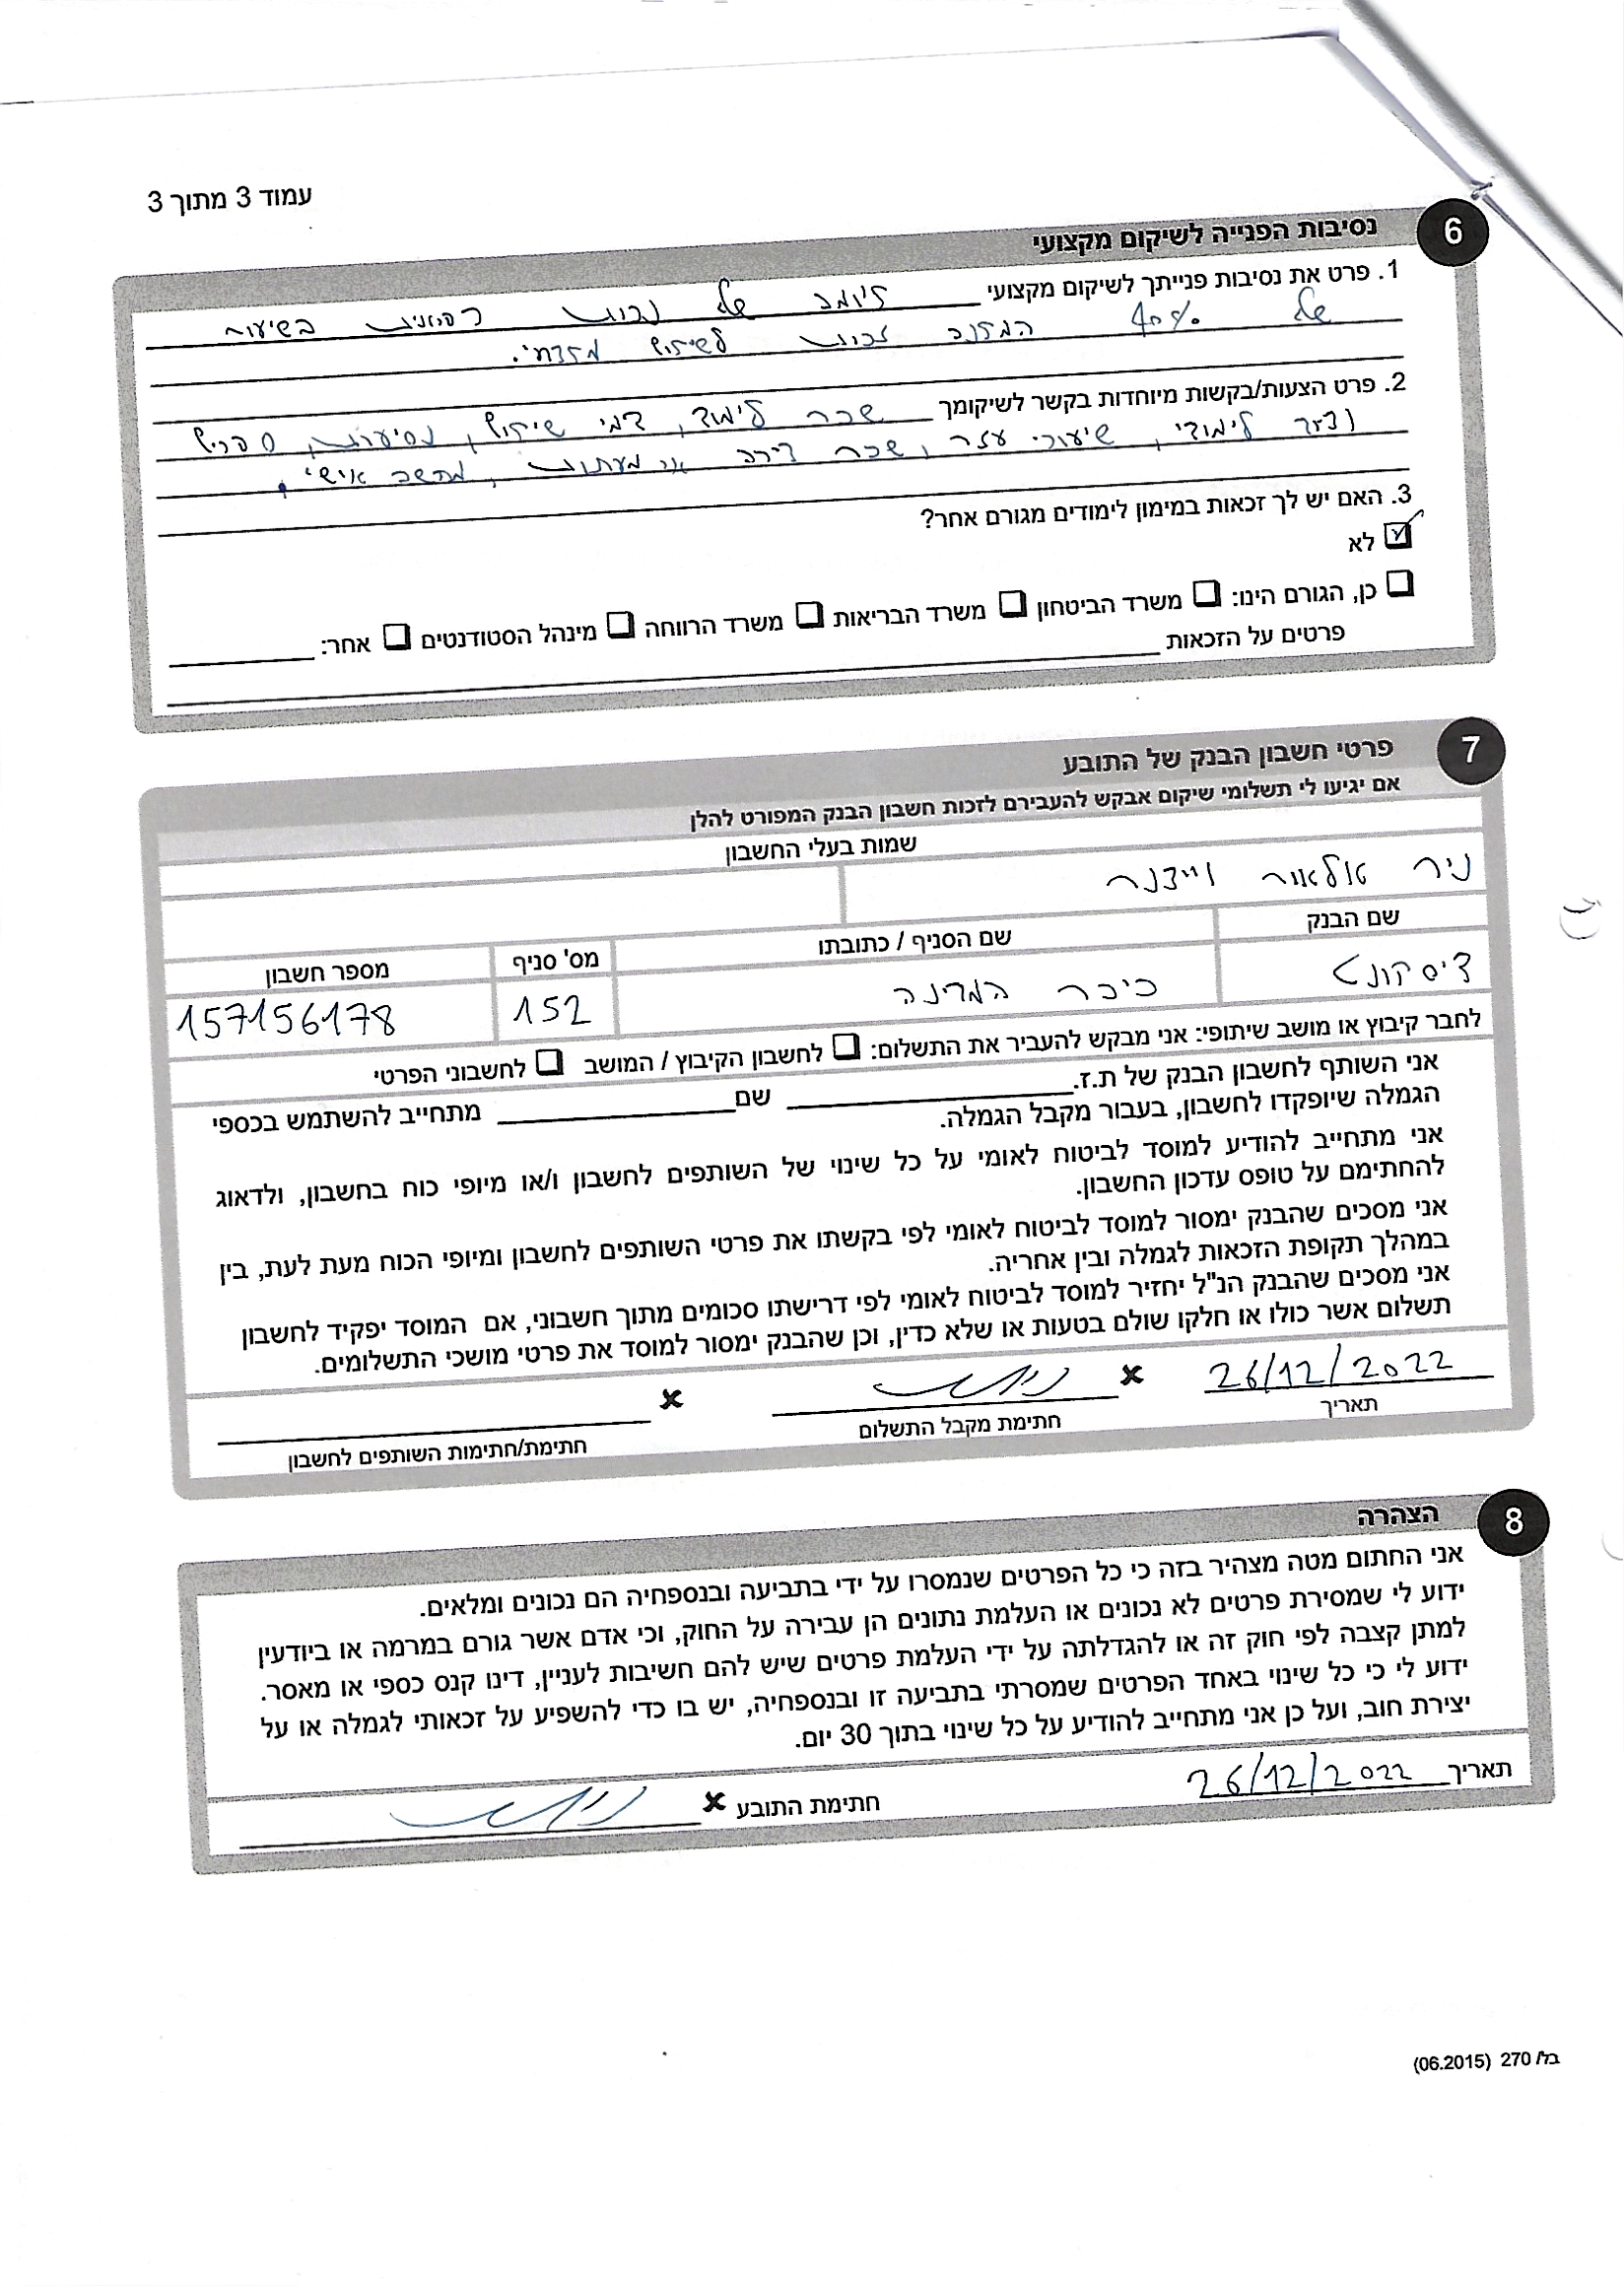 עמוד 3 מתוך 3
6
נסיבות הפנייה לשיקום מקצועי
1. פרט את נסיבות פנייתך לשיקום מקצועי קיומה של נכות רפואית בשיעור
של 40% המזכה זכות לשיקום מקצועי.
2. פרט הצעות/בקשות מיוחדות בקשר לשיקומך שכר לימוד, דמי שיקום, נסיעות, ספרים
וציוד לימודי, שיעורי עזר, שכר דירה או מעונות, מחשב אישי.
3. האם יש לך זכאות במימון לימודים מגורם אחר?
לא
כן, הגורם הינו: משרד הביטחון משרד הבריאות משרד הרווחה מינהל הסטודנטים אחר:
פרטים על הזכאות
7
פרטי חשבון הבנק של התובע
אם יגיעו לי תשלומי שיקום אבקש להעבירם לזכות חשבון הבנק המפורט להלן
שמות בעלי החשבון
ניר
שם הבנק שם הסניף / כתובתו מס' סניף מספר חשבון
דיסקונט כיכר המדינה 152 157156178
לחבר קיבוץ או מושב שיתופי: אני מבקש להעביר את התשלום: לחשבון הקיבוץ / המושב לחשבוני הפרטי
אני השותף לחשבון הבנק של ת.ז. שם מתחייב להשתמש בכספי
הגמלה שיופקדו לחשבון, בעבור מקבל הגמלה.
אני מתחייב להודיע למוסד לביטוח לאומי על כל שינוי של השותפים לחשבון ו/או מיופי כוח בחשבון, ולדאוג
להחתימם על טופס עדכון החשבון.
אני מסכים שהבנק ימסור למוסד לביטוח לאומי לפי בקשתו את פרטי השותפים לחשבון ומיופי הכוח מעת לעת, בין
במהלך תקופת הזכאות לגמלה ובין אחריה.
אני מסכים שהבנק הנ"ל יחזיר למוסד לביטוח לאומי לפי דרישתו סכומים מתוך חשבוני, אם המוסד יפקיד לחשבון
תשלום אשר כולו או חלקו שולם בטעות או שלא כדין, וכן שהבנק ימסור למוסד את פרטי מושכי התשלומים.
26/12/2022
תאריך חתימת מקבל התשלום חתימת/חתימות השותפים לחשבון
8
הצהרה
אני החתום מטה מצהיר בזה כי כל הפרטים שנמסרו על ידי בתביעה ובנספחיה הם נכונים ומלאים.
ידוע לי שמסירת פרטים לא נכונים או העלמת נתונים הן עבירה על החוק, וכי אדם אשר גורם במרמה או ביודעין
למתן קצבה לפי חוק זה או להגדלתה על ידי העלמת פרטים שיש להם חשיבות לעניין, דינו קנס כספי או מאסר.
ידוע לי כי כל שינוי באחד הפרטים שמסרתי בתביעה זו ובנספחיה, יש בו כדי להשפיע על זכאותי לגמלה או על
יצירת חוב, ועל כן אני מתחייב להודיע על כל שינוי בתוך 30 יום.
תאריך 26/12/2022 חתימת התובע
בל/ 270 (06.2015)